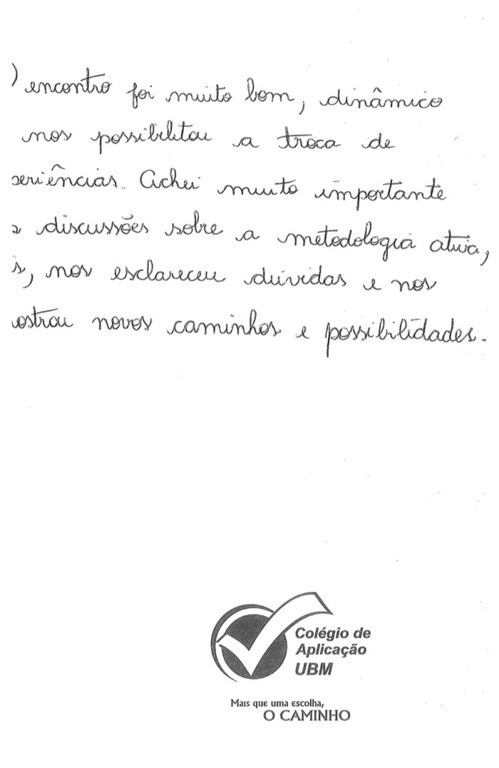 ) encontro foi muito bom, dinâmico
nos possibilitou a troca de
eriências. Achei muito importante
s discussões sobre a metodologia ativa,
s, nos esclareceu dúvidas e nos
ostrou novos caminhos e possibilidades.
Colégio de
Aplicação
UBM
Mais que uma escolha,
O CAMINHO